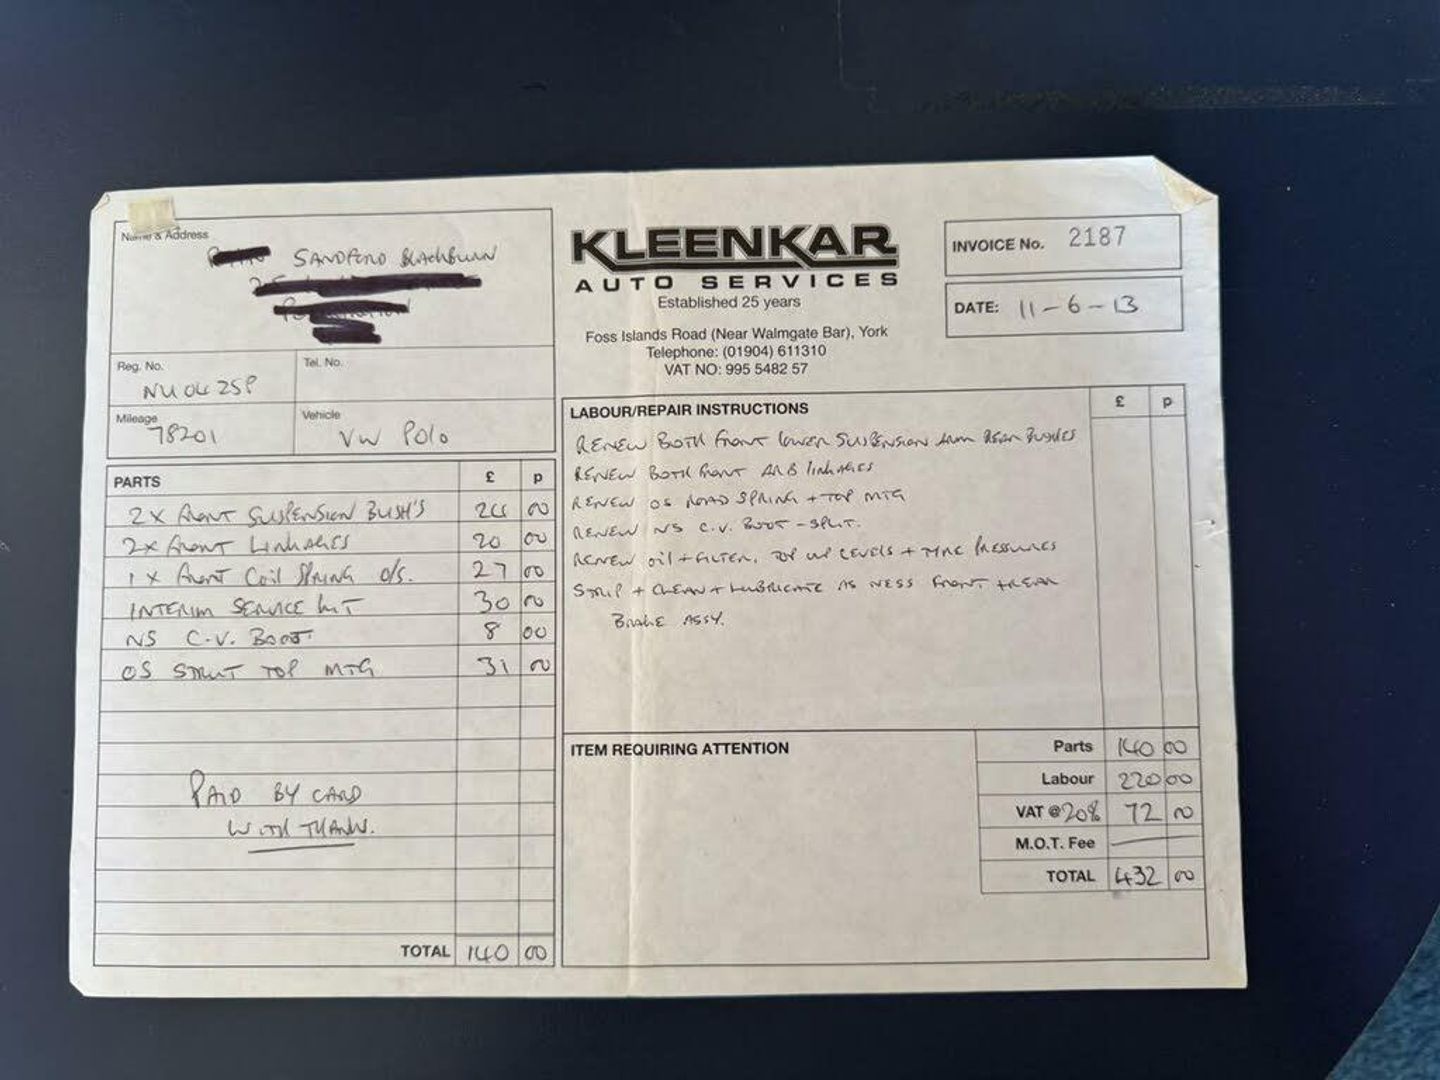 Name & Address
SANDFORD BLACKBURN
Reg. No.
NU04 ZSP
Tel. No.
Mileage
78201
Vehicle
VW POLO
KLEENKAR
AUTO SERVICES
Established 25 years
Foss Islands Road (Near Walmgate Bar), York
Telephone: (01904) 611310
VAT NO: 995 5482 57
INVOICE No. 2187
DATE: 11-6-13
PARTS £ p
2x FRONT SUSPENSION BUSH'S 24 00
2x FRONT LINKAGES 20 00
1 x FRONT COIL SPRING O/S. 27 00
INTERIM SERVICE KIT 30 00
NS C.V. BOOT. 8 00
OS STRUT TOP MTG 31 00
PAID BY CARD
WITH THANKS.
TOTAL 140 00
LABOUR/REPAIR INSTRUCTIONS £ p
RENEW BOTH FRONT LOWER SUSPENSION ARM REAR BUSHES
RENEW BOTH FRONT ARB LINKAGES
RENEW OS ROAD SPRING + TOP MTG
RENEW NS C.V. BOOT - SPLIT.
RENEW OIL + FILTER, TOP UP LEVELS + TYRE PRESSURES
STRIP + CLEAN + LUBRICATE AS NESS FRONT + REAR
BRAKE ASSY.
ITEM REQUIRING ATTENTION
Parts 140 00
Labour 220 00
VAT @ 20% 72 00
M.O.T. Fee
TOTAL 432 00